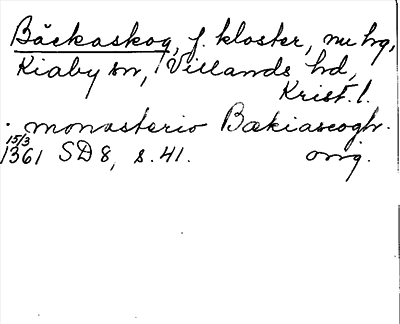 Bäckaskog, f. kloster, nu hg,
Kiaby sn, Villands hd,
Krist. l.
. monasterio Bækiascogh.
15/3
1361 SD 8, s. 41. orig.